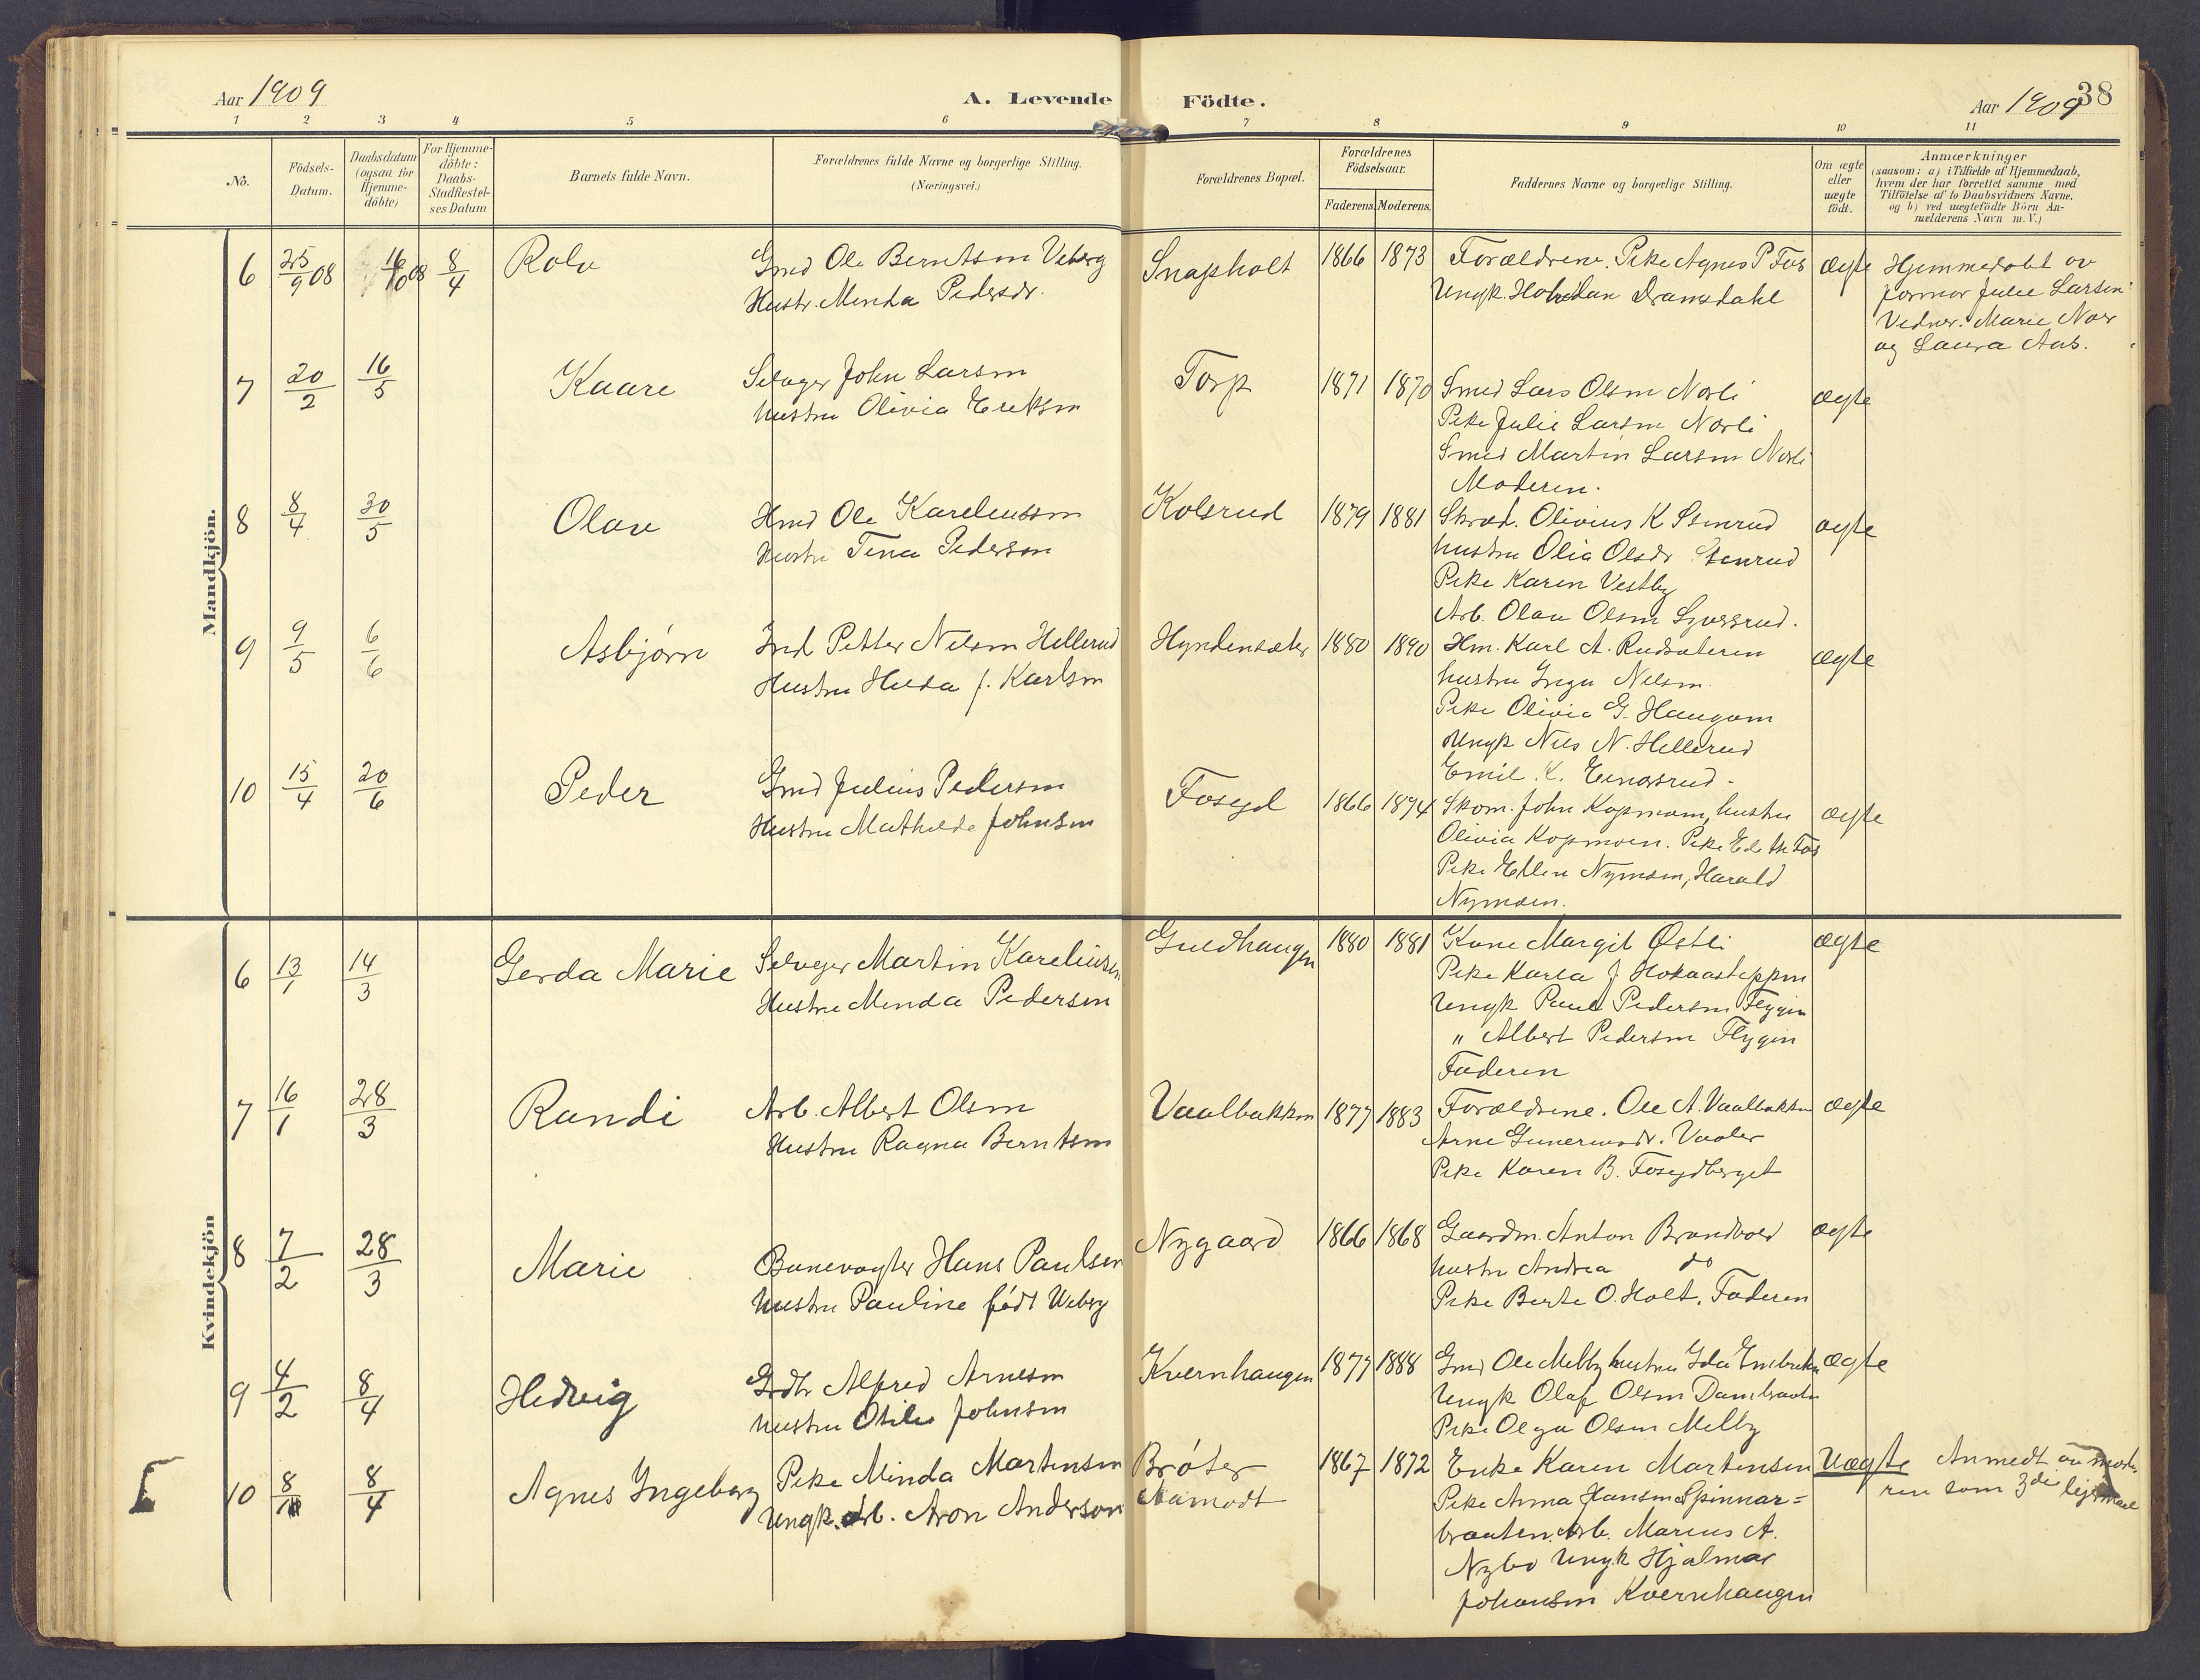 Aar 1909
A. Levende Födte.
Aar 1909
38
1 2 3 4 5 6 7 8 9 10 11
No.
Födsels-Datum.
Daabsdatum (ogsaa for Hjemme-döbte)
For Hjemme-döbte: Daabs-Stadfæstel-ses Datum
Barnets fulde Navn.
Forældrenes fulde Navne og borgerlige Stilling. (Næringsvei.)
Forældrenes Bopæl.
Forældrenes Födselsaar.
Faderens. Moderens.
Faddernes Navne og borgerlige Stilling.
Om ægte eller uægte födt.
Anmærkninger
(saasom: a) i Tilfælde af Hjemmedaab,
hvem der har forrettet samme med
Tilföielse af to Daabsvidners Navne,
og b) ved uægtefödte Börn An-
melderens Navn m. V.)
Mandkjön.
6 25/9 08 16/10 08 8/4 Rolv Gmd Ole Berntsen Veberg Snapholt 1866 1873 Forældrene. Pike Agnes P Fos ægte Hjemmedøbt av
Hustr. Minda Pedersdr. Ungk. Halvdan Dramsdahl farmor Julie Larsen
Vidner: Marie Noer
og Laura Aas.
7 20/2 16/5 Kaare Selveger John Larsen Torp 1871 1870 Smed Lars Olsen Norli ægte
hustru Olivia Eriksen Pike Julie Larsen Norli
Smed Martin Larsen Norli
Moderen.
8 8/4 30/5 Olav Hmd Ole Kareliussen Kolsrud 1879 1881 Skræd. Olivius K Stenrud ægte
Hustru Tina Pedersen hustru Olia Olsdr Stenrud
Pike Karen Vestby
Arb. Olav Olsen
9 9/5 6/6 Asbjørn Ind Petter Nilsen Hellerud Hyndensæter 1880 1890 Hm. Karl A. Rudsæteren ægte
Hustru Hilda f. Karlsen hustru Inga Nilsen
Pike Olivia G. Haugom
Ungk Nils N. Hellerud
Emil K.
10 15/4 20/6 Peder Gmd Julius Pedersen Fosegd 1866 1874 Skom. John Kopmoen, hustru ægte
Hustru Mathilde Johnsen Olivia Kopmoen. Pike Edithe Fos
Pike Ellen Nymoen, Harald
Nymoen.
Kvindekjön
6 13/1 14/3 Gerda Marie Selveger Martin Kareliusen Guldhaugen 1880 1881 Kone Margit Østli ægte
Hustru Minda Pedersen Pike Karla J. Hokaasteppen
Ungk Paul Pedersen Flygin
" Albert Pedersen Flygin
Faderen
7 16/1 28/3 Randi Arb. Albert Olsen Vaalbakken 1877 1883 Forældrene. Ole A. Vaalbakken ægte
Hustru Ragna Berntsen Arne Vaaler
Pike Karen B. Fosegdberget
8 7/2 28/3 Marie Banevogter Hans Paulsen Nygaard 1866 1868 Gaardm. Anton Brandvold ægte
hustru Pauline født Weberg hustru Andrea do
Pike Berte O. Holt. Faderen
9 4/2 8/4 Hedvig Grdbr Alfred Arnesen Kvernhaugen 1877 1888 Gmd Ole Melby hustru Ida Embretsen ægte
hustru Otilie Johnsen Ungk Olaf Olsen Dambraaten
Pike Olga Olsen Melby
10 8/1 8/4 Agnes Ingeborg Pike Minda Martinsen Brøter 1867 1872 Enke Karen Martinsen Uægte Anmeldt av mode-
Ungk. Arb. Aron Anderson Aamodt Pike Anna Hansen Spinnar= ren som 3die lejermaal
braaten. Arb. Marius A.
Nybo Ungk Hjalmar
Johansen Kvernhaugen